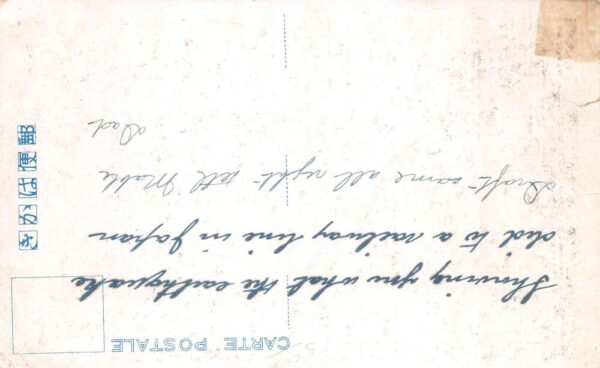 CARTE POSTALE
郵便はかき
Showing you what the earthquake
did to a railway line in Japan
Draft came all right tell Mable
Dad